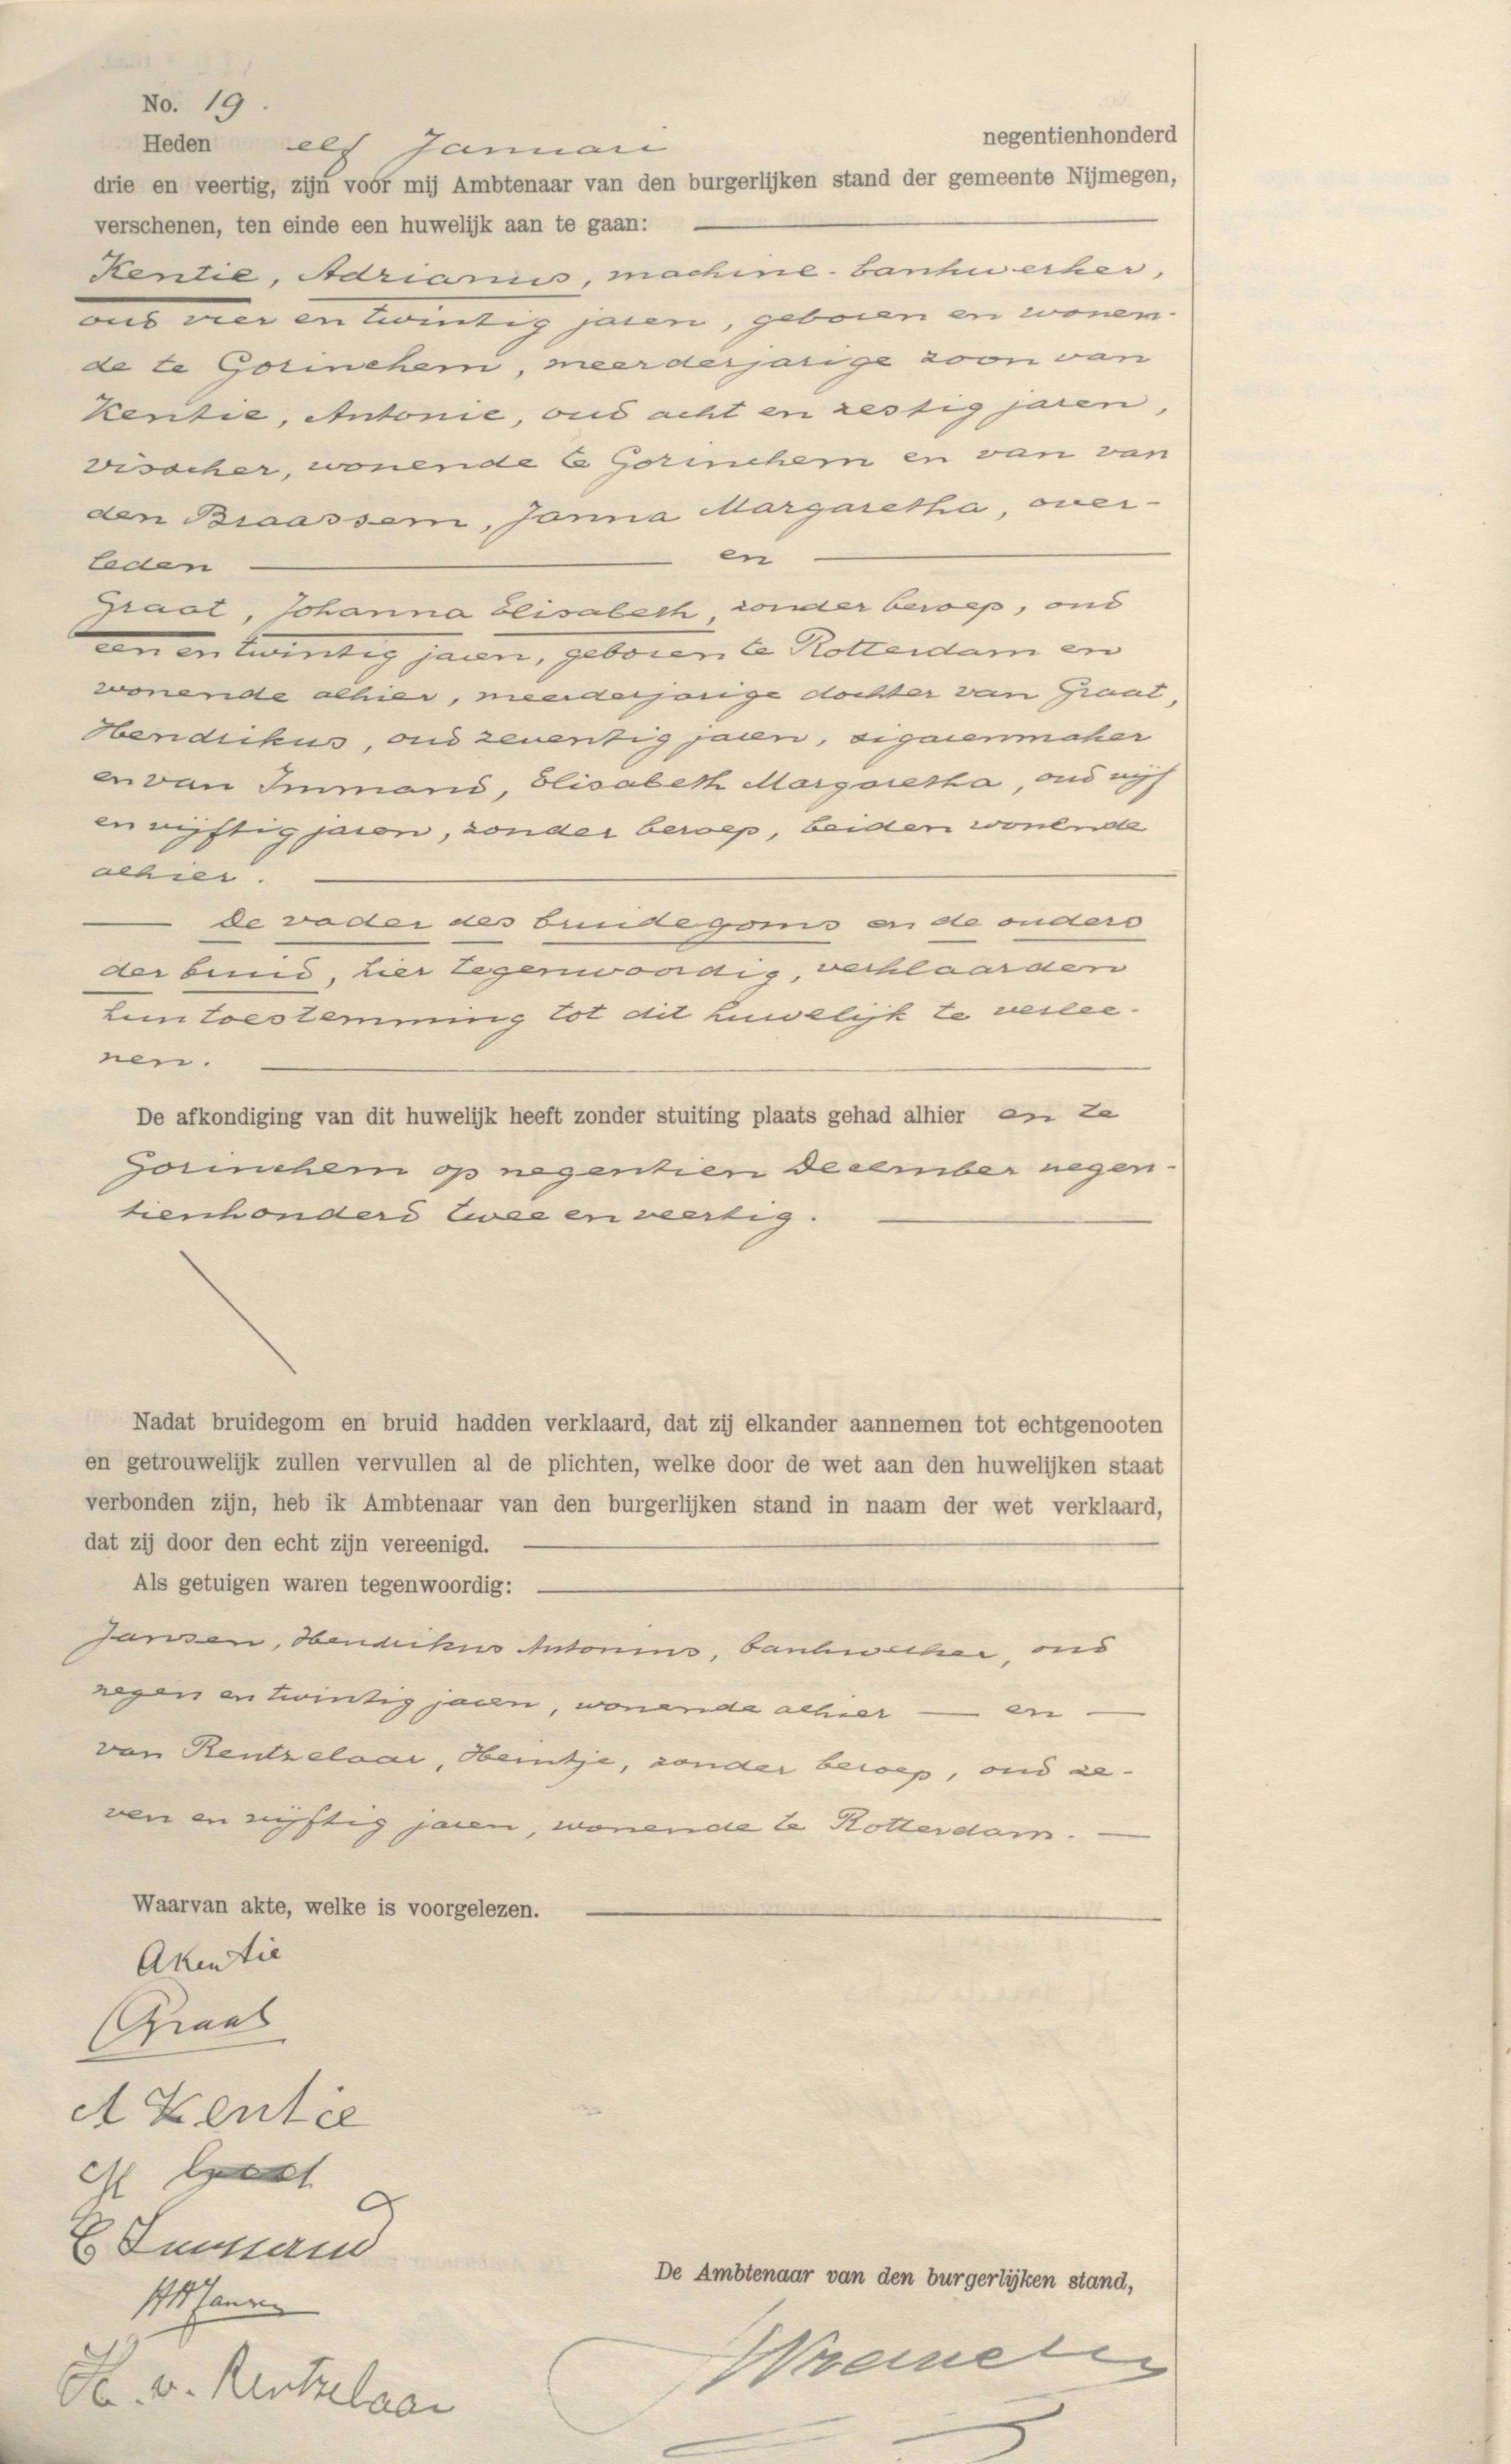 No. 19.
Heden elf Januari negentienhonderd
drie en veertig, zijn voor mij Ambtenaar van den burgerlijken stand der gemeente Nijmegen,
verschenen, ten einde een huwelijk aan te gaan:
Kentie, Adrianus, machine-bankwerker,
oud vier en twintig jaren, geboren en wonen-
de te Gorinchem, meerderjarige zoon van
Kentie, Antonie, oud acht en zestig jaren,
visscher, wonende te Gorinchem en van van
den Braassem, Janna Margaretha, over-
leden en
Graat, Johanna Elisabeth, zonder beroep, oud
een en twintig jaren, geboren te Rotterdam en
wonende alhier, meerderjarige dochter van Graat,
Hendrikus, oud zeventig jaren, sigarenmaker
en van Immand, Elisabeth Margaretha, oud vijf
en vijftig jaren, zonder beroep, beiden wonende
alhier.
De vader des bruidegoms en de ouders
der bruid, hier tegenwoordig, verklaarden
hun toestemming tot dit huwelijk te verlee-
nen.
De afkondiging van dit huwelijk heeft zonder stuiting plaats gehad alhier en te
Gorinchem op negentien December negen-
tienhonderd twee en veertig.
Nadat bruidegom en bruid hadden verklaard, dat zij elkander aannemen tot echtgenooten
en getrouwelijk zullen vervullen al de plichten, welke door de wet aan den huwelijken staat
verbonden zijn, heb ik Ambtenaar van den burgerlijken stand in naam der wet verklaard,
dat zij door den echt zijn vereenigd.
Als getuigen waren tegenwoordig:
Jansen, Hendrikus Antonius, bankwerker, oud
negen en twintig jaren, wonende alhier en
van Rentzelaar, Heintje, zonder beroep, oud ze-
ven en vijftig jaren, wonende te Rotterdam.
Waarvan akte, welke is voorgelezen.
AKentie
Graat
A Kentie
E Immand
De Ambtenaar van den burgerlijken stand,
HAJansen
H. v. Rentzelaar